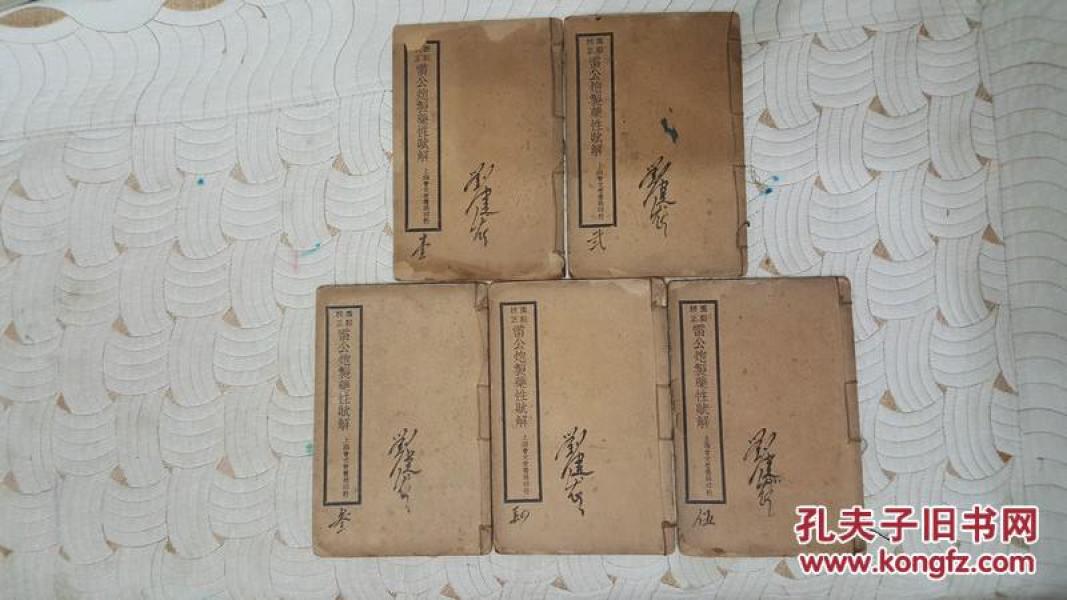 圈點校正
雷公炮製藥性賦解
上海會文堂書局印行
劉建
壹
圈點校正
雷公炮製藥性賦解
上海會文堂書局印行
劉建
貳
圈點校正
雷公炮製藥性賦解
上海會文堂書局印行
劉建
叁
圈點校正
雷公炮製藥性賦解
上海會文堂書局印行
劉建
肆
圈點校正
雷公炮製藥性賦解
上海會文堂書局印行
劉建
伍
孔夫子旧书网
www.kongfz.com